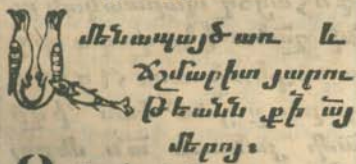 Ամենապայծառ և
Ճշմարիտ յարու
Թեանն քի այ
մերոյ։